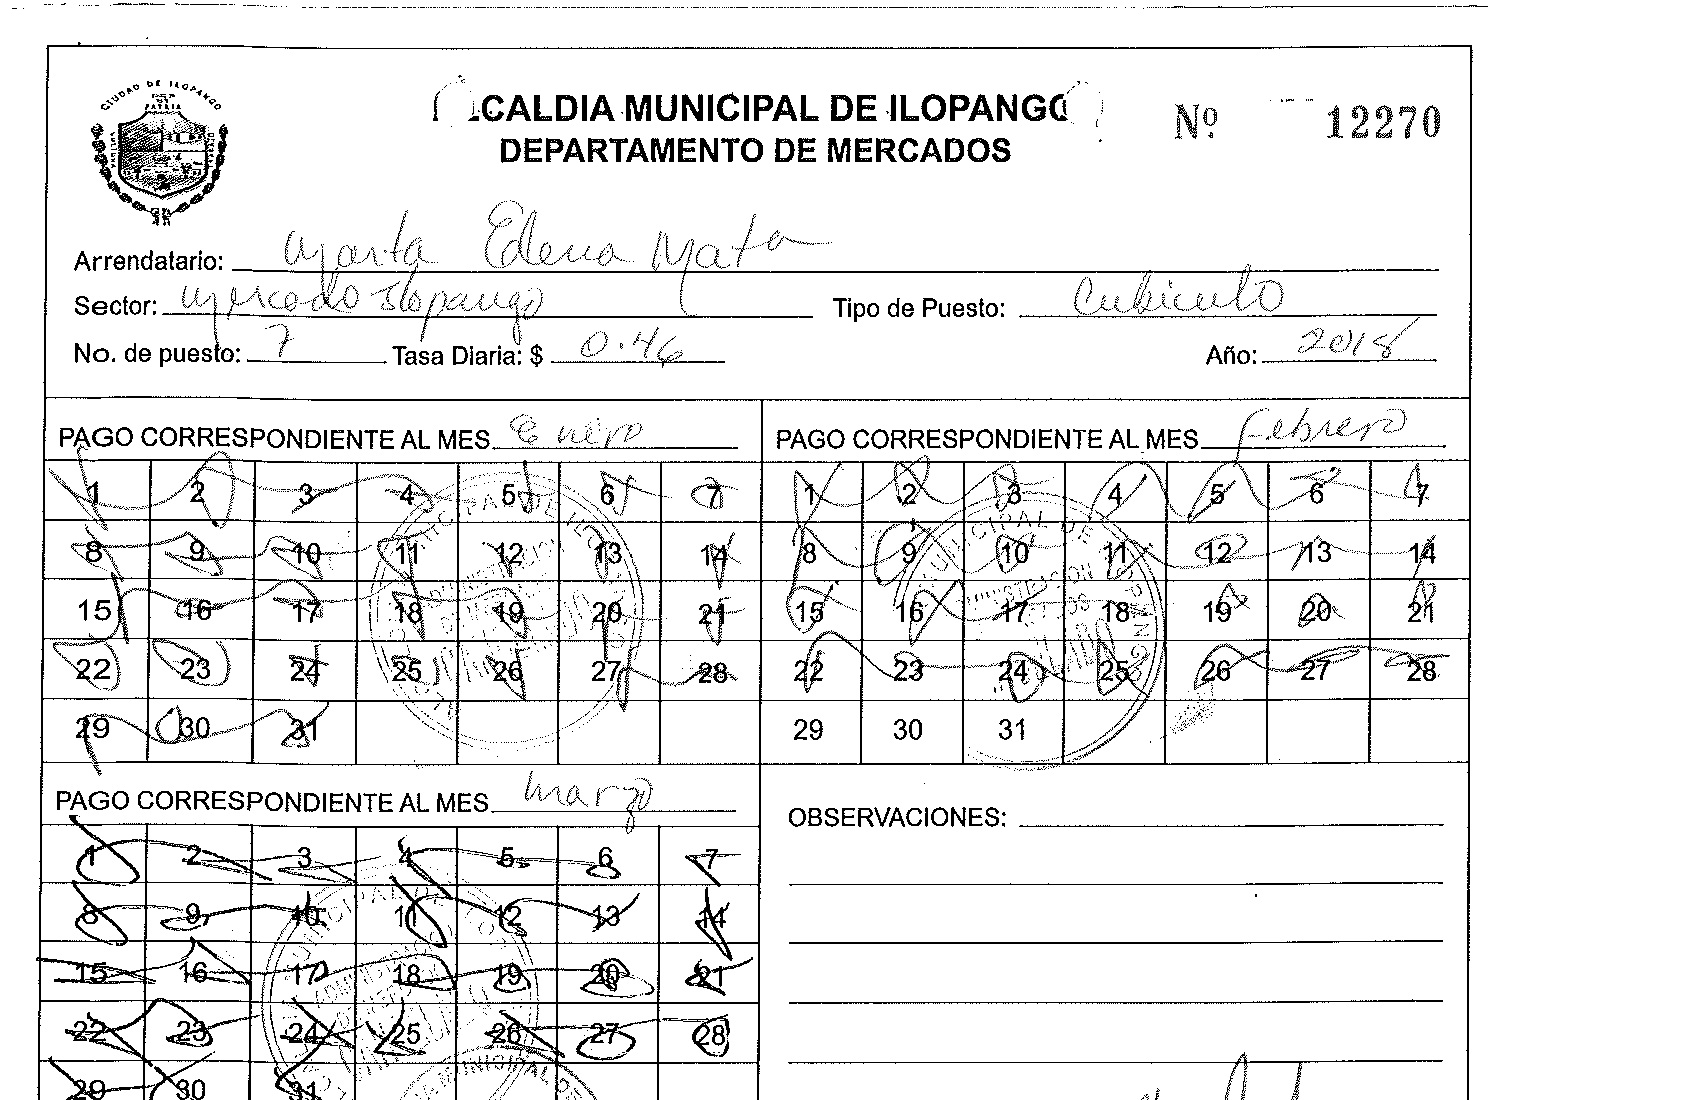 CIUDAD DE ILOPANGO
PATRIA
ALCALDIA MUNICIPAL DE ILOPANGO
Nº 12270
DEPARTAMENTO DE MERCADOS
Arrendatario: Marta Elena Mata
Sector: Mercado Ilopango Tipo de Puesto: Cubiculo
No. de puesto: 7 Tasa Diaria: $ 0.46 Año: 2018
PAGO CORRESPONDIENTE AL MES Enero
1 2 3 4 5 6 7
8 9 10 11 12 13 14
15 16 17 18 19 20 21
22 23 24 25 26 27 28
29 30 31
PAGO CORRESPONDIENTE AL MES Febrero
1 2 3 4 5 6 7
8 9 10 11 12 13 14
15 16 17 18 19 20 21
22 23 24 25 26 27 28
29 30 31
PAGO CORRESPONDIENTE AL MES Marzo
1 2 3 4 5 6 7
8 9 10 11 12 13 14
15 16 17 18 19 20 21
22 23 24 25 26 27 28
29 30 31
OBSERVACIONES: